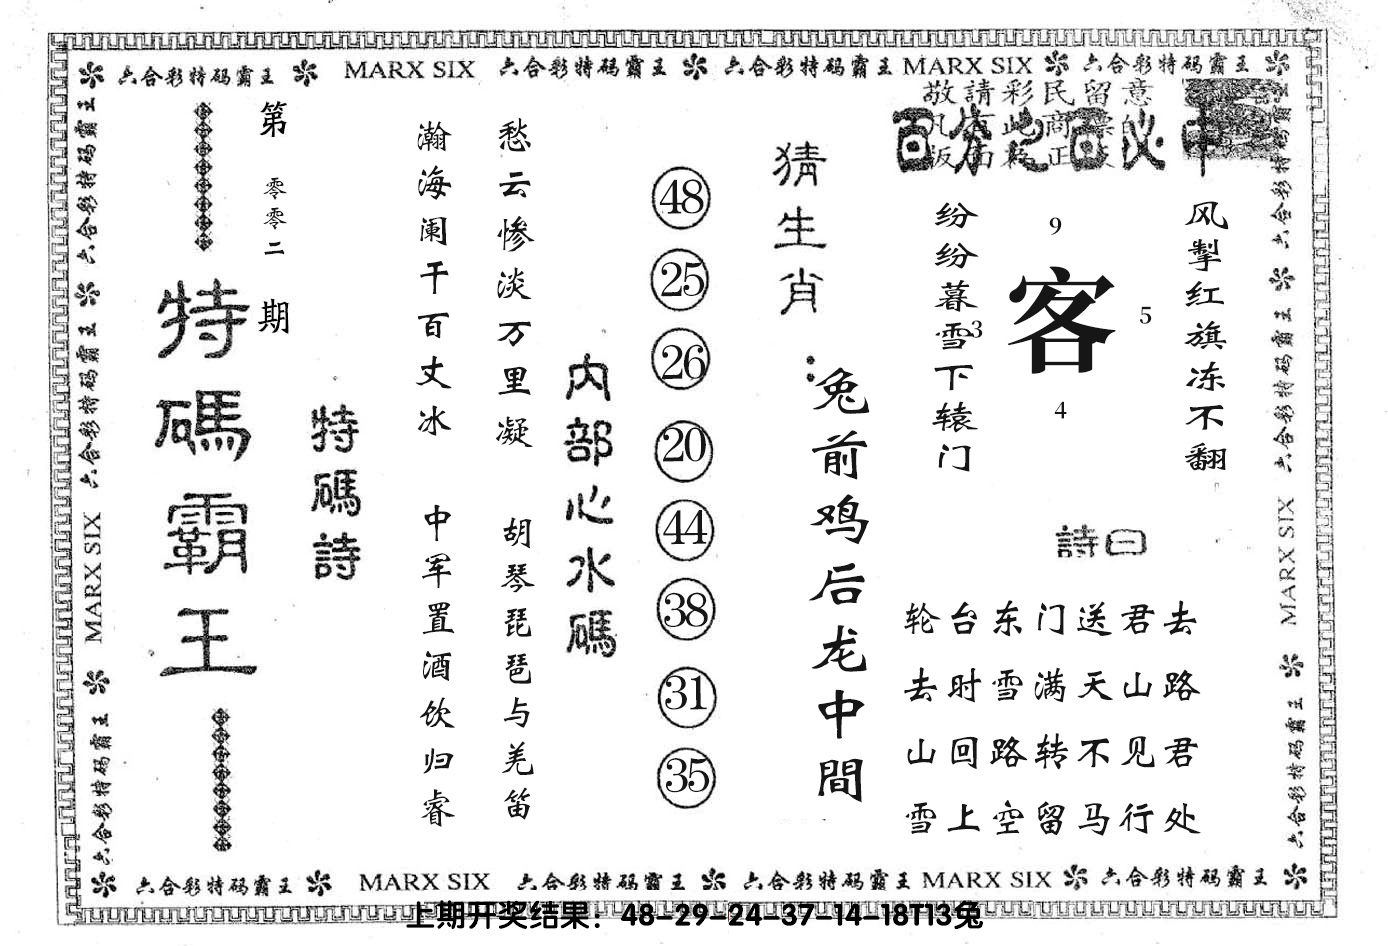 六合彩特码霸王 MARX SIX 六合彩特码霸王 六合彩特码霸王 MARX SIX 六合彩特码霸王
敬請彩民留意
百分之百必中
风掣红旗冻不翻
9
客
5
3
4
纷纷暮雪下辕门
詩曰
轮台东门送君去
去时雪满天山路
山回路转不见君
雪上空留马行处
猜生肖:
兔前鸡后龙中間
48
25
26
20
44
38
31
35
内部心水碼
愁云惨淡万里凝
胡琴琵琶与羌笛
瀚海阑干百丈冰
中军置酒饮归睿
特碼詩
第零零二期
特碼霸王
六合彩特码霸王 六合彩特码霸王 MARX SIX 六合彩特码霸王
六合彩特码霸王 六合彩特码霸王 MARX SIX 六合彩特码霸王
六合彩特码霸王 MARX SIX 六合彩特码霸王 六合彩特码霸王 MARX SIX 六合彩特码霸王
上期开奖结果：48-29-24-37-14-18T13兔